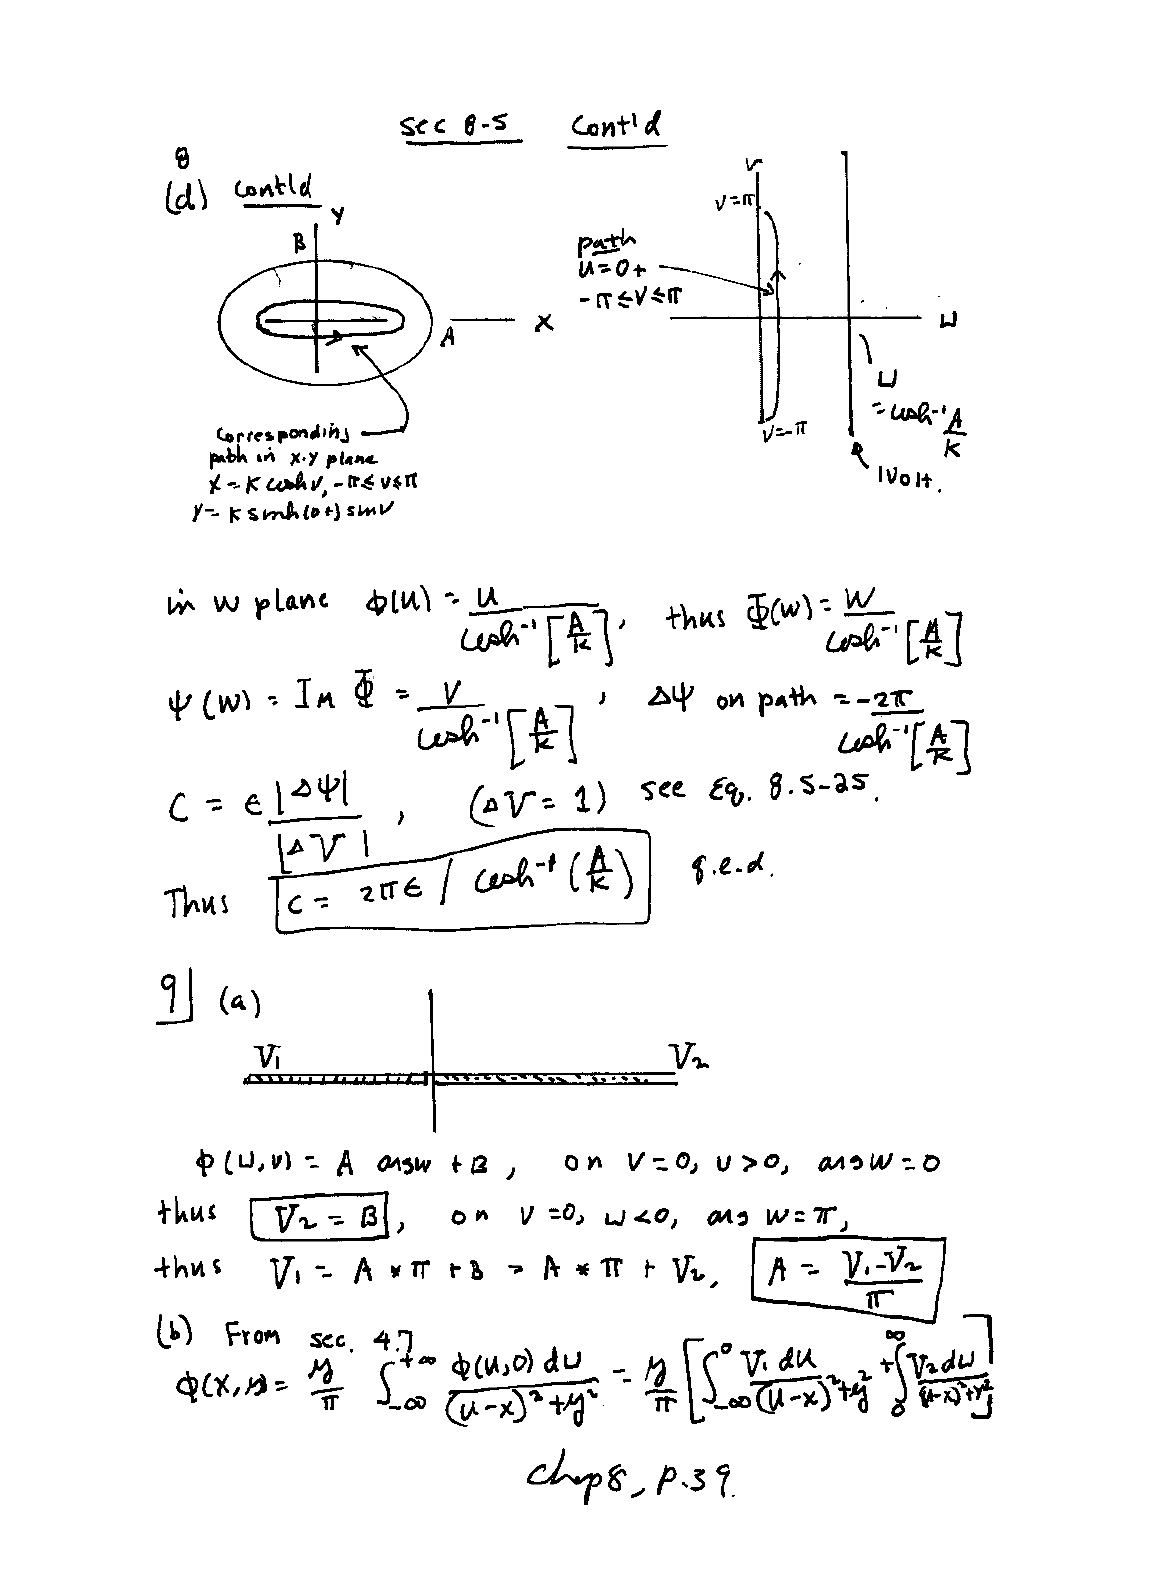 sec 8-5 Cont'd
8
(d) cont'd
Y
B
A
X
Corresponding
path in x-y plane
X = K cosh v, -π ≤ v ≤ π
Y = K sinh(0+) sin v
V
V=π
path
u=0+
-π ≤ v ≤ π
V=-π
u
u
= cosh⁻¹ A/K
1 Volt.
in w plane ϕ(u) = u / cosh⁻¹[A/K], thus Φ(w) = w / cosh⁻¹[A/K]
ψ(w) = Im Φ = v / cosh⁻¹[A/K], Δψ on path = -2π / cosh⁻¹[A/K]
C = ε |Δψ| / |ΔV|, (ΔV = 1) see Eq. 8.5-25.
Thus C = 2πε / cosh⁻¹(A/K) q.e.d.
9] (a)
V₁ V₂
ϕ(u,v) = A arg w + B, on V=0, u>0, arg w = 0
thus V₂ = B, on V=0, u<0, arg w = π,
thus V₁ = A * π + B = A * π + V₂, A = V₁-V₂ / π
(b) From sec. 4.7
ϕ(x,y) = y/π ∫_{-∞}^{+∞} ϕ(u,0) du / (u-x)²+y² = y/π [∫_{-∞}^{0} V₁ du / (u-x)²+y² + ∫_{0}^{∞} V₂ du / (u-x)²+y²]
Chap 8, p.39.